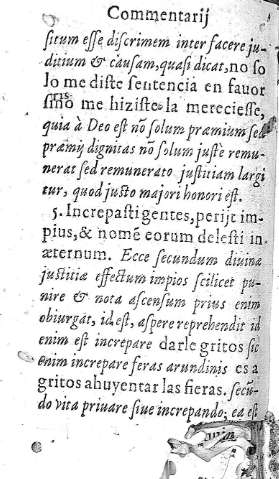 Commentarij
situm esse discrimem inter facere ju-
ditium & causam, quasi dicat, no so
lo me diste sentencia en favor
sino me hiziste la mereciesse,
quia à Deo est nõ solum præmium sed
præmij dignitas nõ solum juste remu-
nerat sed remunerato justitiam largi
tur, quod justo majori honori est.
5. Increpasti gentes, perijt im-
pius, & nomẽ eorum delesti in
æternum. Ecce secundum divinã
justitiæ effectum impios scilicet pu-
nire & nota ascensum prius enim
obiurgat, id est, aspere reprehendit id
enim est increpare darle gritos sic
enim increpare feras arundinis es a
gritos ahuyentar las fieras. secũ-
do vita privare sive increpando; ea est